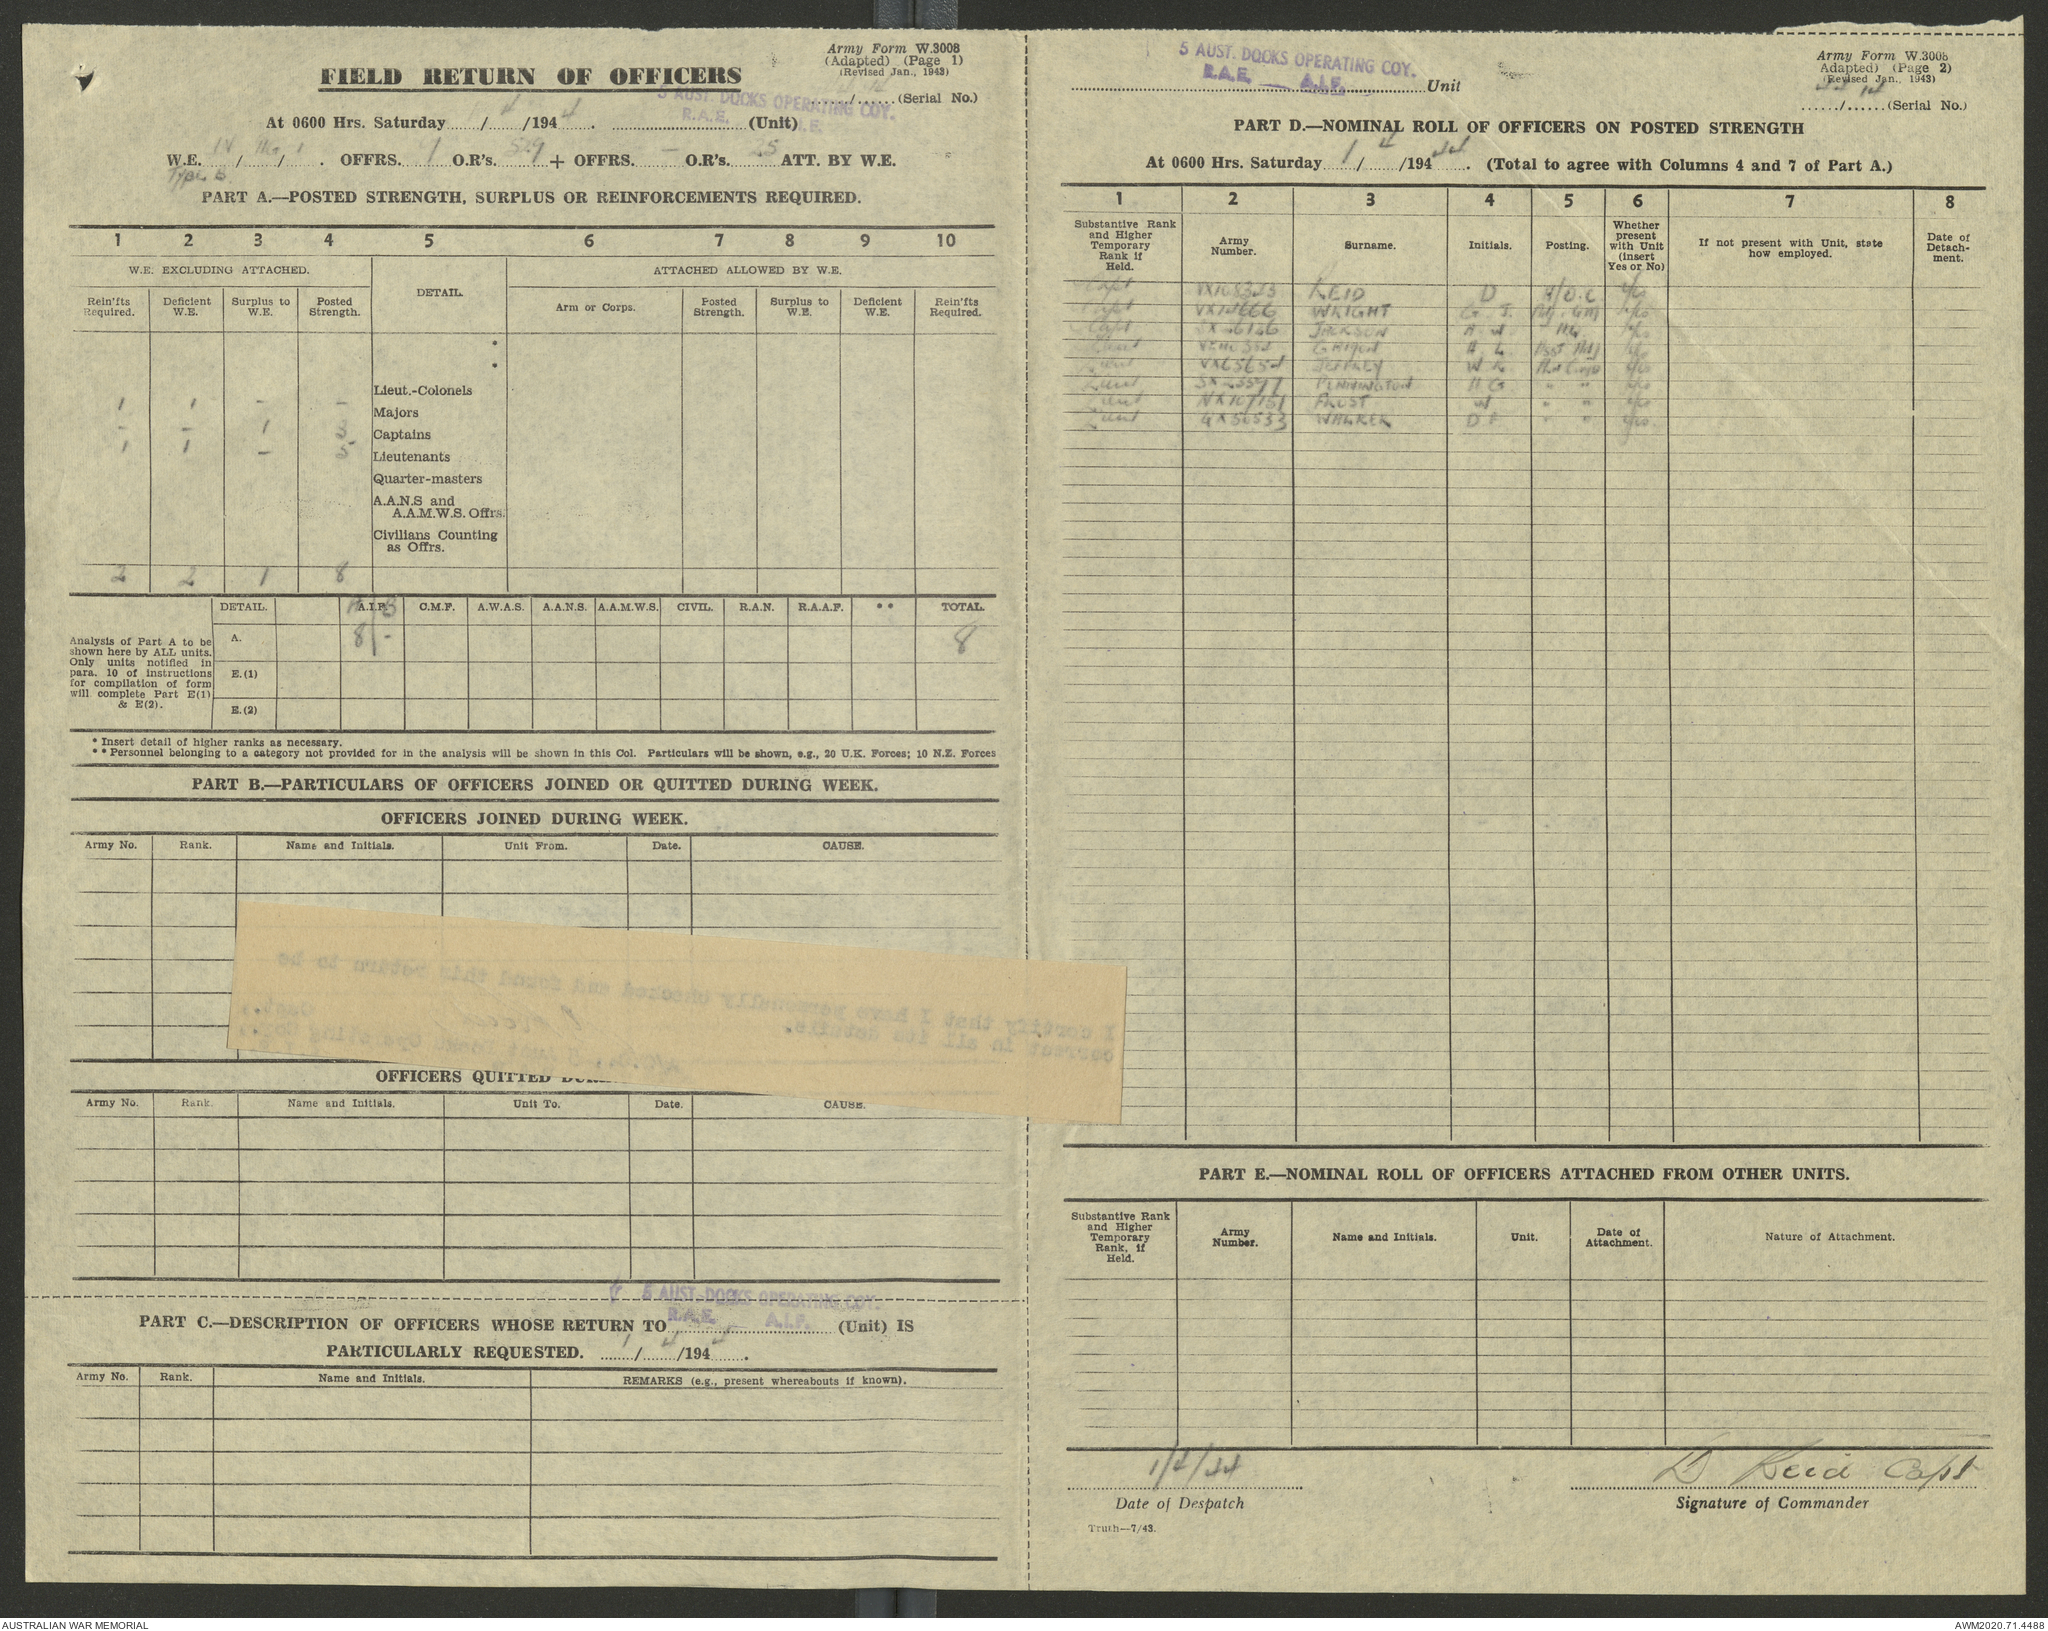 Army Form W.3008
(Adapted) (Page 1)
(Revised Jan., 1943)
FIELD RETURN OF OFFICERS
....../...... (Serial No.)
5 AUST. DOCKS OPERATING COY.
R.A.E. A.I.F.
At 0600 Hrs. Saturday 1 / 4 /194 4 . (Unit)
W.E. / / . OFFRS. 9 O.R's. 529 + OFFRS. – O.R's. 25 ATT. BY W.E.
Type B
PART A.—POSTED STRENGTH, SURPLUS OR REINFORCEMENTS REQUIRED.
1 2 3 4 5 6 7 8 9 10
W.E. EXCLUDING ATTACHED. DETAIL. ATTACHED ALLOWED BY W.E.
Rein'fts Required. Deficient W.E. Surplus to W.E. Posted Strength. Arm or Corps. Posted Strength. Surplus to W.E. Deficient W.E. Rein'fts Required.
*
*
Lieut.-Colonels
1 1 – – Majors
– – 1 3 Captains
1 1 – 5 Lieutenants
Quarter-masters
A.A.N.S and
A.A.M.W.S. Offrs.
Civilians Counting
as Offrs.
2 2 1 8
DETAIL. A.I.F. C.M.F. A.W.A.S. A.A.N.S. A.A.M.W.S. CIVIL. R.A.N. R.A.A.F. ** TOTAL.
Analysis of Part A to be
shown here by ALL units.
Only units notified in
para. 10 of instructions
for compilation of form
will complete Part E(1)
& E(2).
A. 8/- 8
E.(1)
E.(2)
* Insert detail of higher ranks as necessary.
** Personnel belonging to a category not provided for in the analysis will be shown in this Col. Particulars will be shown, e.g., 20 U.K. Forces; 10 N.Z. Forces
PART B.—PARTICULARS OF OFFICERS JOINED OR QUITTED DURING WEEK.
OFFICERS JOINED DURING WEEK.
Army No. Rank. Name and Initials. Unit From. Date. CAUSE.
I certify that I have personally checked and found this return to be
correct in all its details.
Capt.,
OFFICERS QUITTED
Army No. Rank. Name and Initials. Unit To. Date. CAUSE.
5 AUST. DOCKS OPERATING COY.
R.A.E. A.I.F.
PART C.—DESCRIPTION OF OFFICERS WHOSE RETURN TO (Unit) IS
PARTICULARLY REQUESTED. 1 / 4 /194 4 .
Army No. Rank. Name and Initials. REMARKS (e.g., present whereabouts if known).
5 AUST. DOCKS OPERATING COY.
R.A.E. A.I.F. Unit
Army Form W.3008
Adapted) (Page 2)
(Revised Jan., 1943)
....../...... (Serial No.)
PART D.—NOMINAL ROLL OF OFFICERS ON POSTED STRENGTH
At 0600 Hrs. Saturday 1 / 4 /194 44 . (Total to agree with Columns 4 and 7 of Part A.)
1 2 3 4 5 6 7 8
Substantive Rank and Higher Temporary Rank if Held. Army Number. Surname. Initials. Posting. Whether present with Unit (insert Yes or No) If not present with Unit, state how employed. Date of Detachment.
Capt REID D
Capt WRIGHT G. J.
Capt JACKSON A W
Lieut H L
Lieut JEFFREY W
Lieut PENNINGTON H G " "
Lieut NX107151 FROST W " "
Lieut QX50533 WALKER D F " "
PART E.—NOMINAL ROLL OF OFFICERS ATTACHED FROM OTHER UNITS.
Substantive Rank and Higher Temporary Rank, if Held. Army Number. Name and Initials. Unit. Date of Attachment. Nature of Attachment.
1/4/44
Date of Despatch
D Reid Capt
Signature of Commander
Truth—7/43.
AUSTRALIAN WAR MEMORIAL
AWM2020.71.4488